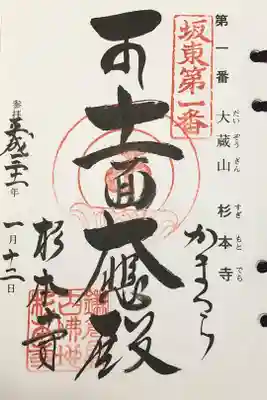 第一番 大蔵山 杉本寺
だいぞうざん すぎもとでら
かまくら
坂東第一番
十一面大悲殿
杉本寺
参拝 平成二十一年 一月十二日